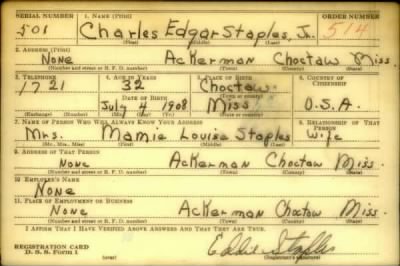 SERIAL NUMBER 1. NAME (Print) ORDER NUMBER
501 Charles Edgar Staples, Jr. 514
(First) (Middle) (Last)
2. ADDRESS (Print)
None Ackerman Choctaw Miss.
(Number and street or R. F. D. number) (Town) (County) (State)
3. TELEPHONE 4. AGE IN YEARS 5. PLACE OF BIRTH 6. COUNTRY OF CITIZENSHIP
1721 32 Choctaw
DATE OF BIRTH (Town or county)
July 4 1908 Miss U.S.A.
(Exchange) (Number) (Mo.) (Day) (Yr.) (State or country)
7. NAME OF PERSON WHO WILL ALWAYS KNOW YOUR ADDRESS 8. RELATIONSHIP OF THAT PERSON
Mrs. Mamie Louise Staples Wife
(Mr., Mrs., Miss) (First) (Middle) (Last)
9. ADDRESS OF THAT PERSON
None Ackerman Choctaw Miss.
(Number and street or R. F. D. number) (Town) (County) (State)
10. EMPLOYER'S NAME
None
11. PLACE OF EMPLOYMENT OR BUSINESS
None Ackerman Choctaw Miss.
(Number and street or R. F. D. number) (Town) (County) (State)
I AFFIRM THAT I HAVE VERIFIED ABOVE ANSWERS AND THAT THEY ARE TRUE.
REGISTRATION CARD
D. S. S. Form 1 Eddie Staples
(over) (Registrant's signature)